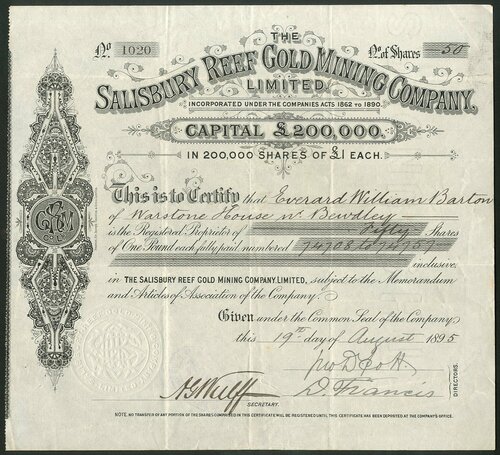 No. 1020
THE
No. of Shares 50
SALISBURY REEF GOLD MINING COMPANY,
LIMITED.
INCORPORATED UNDER THE COMPANIES ACTS 1862 TO 1890.
CAPITAL £200,000.
IN 200,000 SHARES OF £1 EACH.
This is to Certify that Everard William Barton
of Warstone House nr Bewdley
is the Registered Proprietor of Fifty Shares
of One Pound each, fully paid, numbered 74708 to 74757
inclusive,
in THE SALISBURY REEF GOLD MINING COMPANY, LIMITED, subject to the Memorandum
and Articles of Association of the Company.
Given under the Common Seal of the Company,
this 19th day of August 1895
D. Francis
DIRECTORS.
SECRETARY.
NOTE. NO TRANSFER OF ANY PORTION OF THE SHARES COMPRISED IN THIS CERTIFICATE WILL BE REGISTERED UNTIL THIS CERTIFICATE HAS BEEN DEPOSITED AT THE COMPANY'S OFFICE.